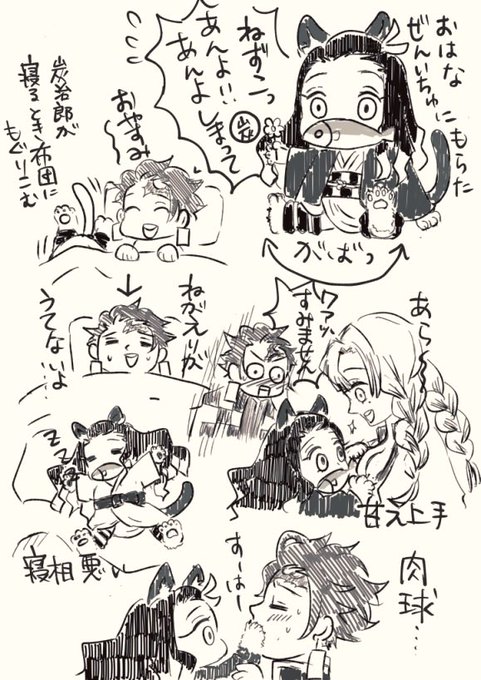 おはな
ぜんいちゅに
もらた
ねずこっ
あんよ!!
あんよしまって
炭
がばっ
炭治郎が
寝るとき布団に
もぐりこむ
おやすみ
ねがえりが
うてないよ
ZZ
寝相悪い
あら〜
ワアッ
すみません
甘え上手
肉球…
すーはー